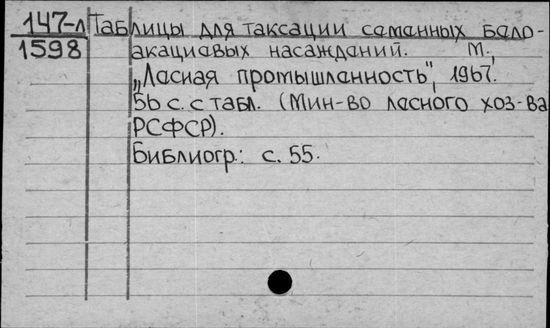 147-л Таблицы для таксации семенных бело-
1598 акациевых насаждений. М.,
„Лесная промышленность", 1967.
56 с. с табл. (Мин-во лесного хоз-ва
РСФСР).
Библиогр.: с. 55.